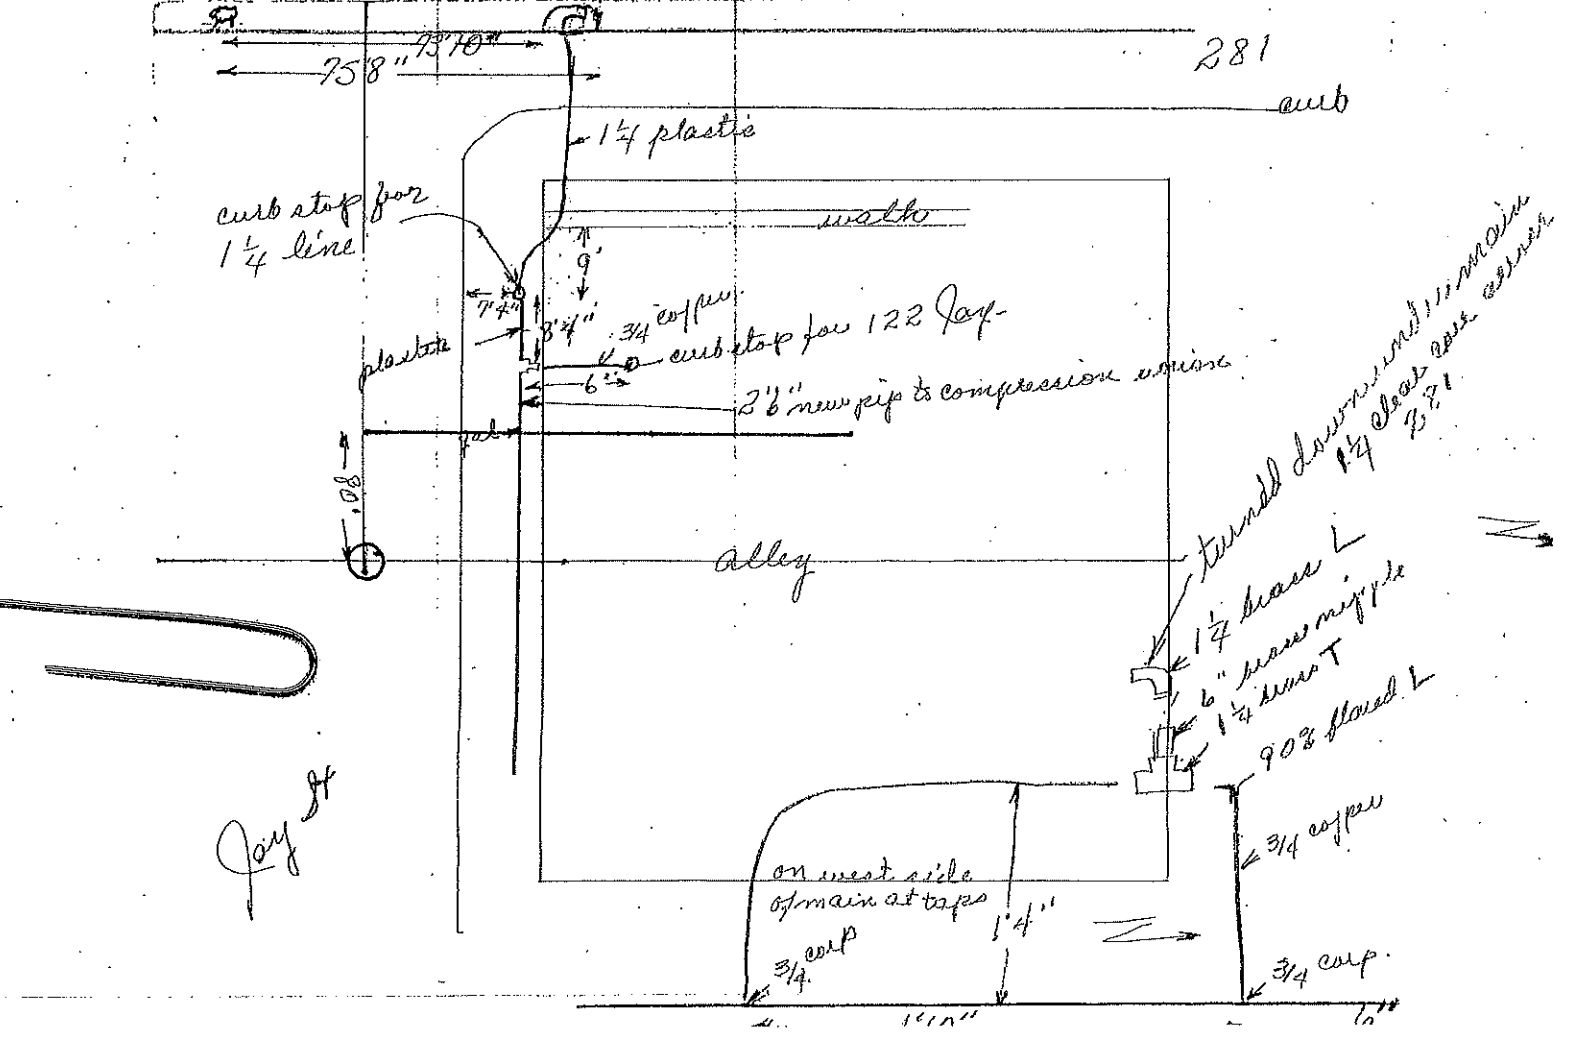 73'10"
75'8"
281
curb
1 1/4 plastic
curb stop for
1 1/4 line
walk
9'
7'4"
8'4"
3/4 copper
plastic
curb stop for 122 Jay
6"
2'6" new pip to compression union
gal
80'
alley
turned down main
1 1/4 clear
281
1 1/4 brass L
6" brass nipple
1 1/4 brass T
90% flared L
3/4 copper
Jay St
on west side
of main at taps
1'4"
3/4 corp
3/4 corp.
1'10"
6"